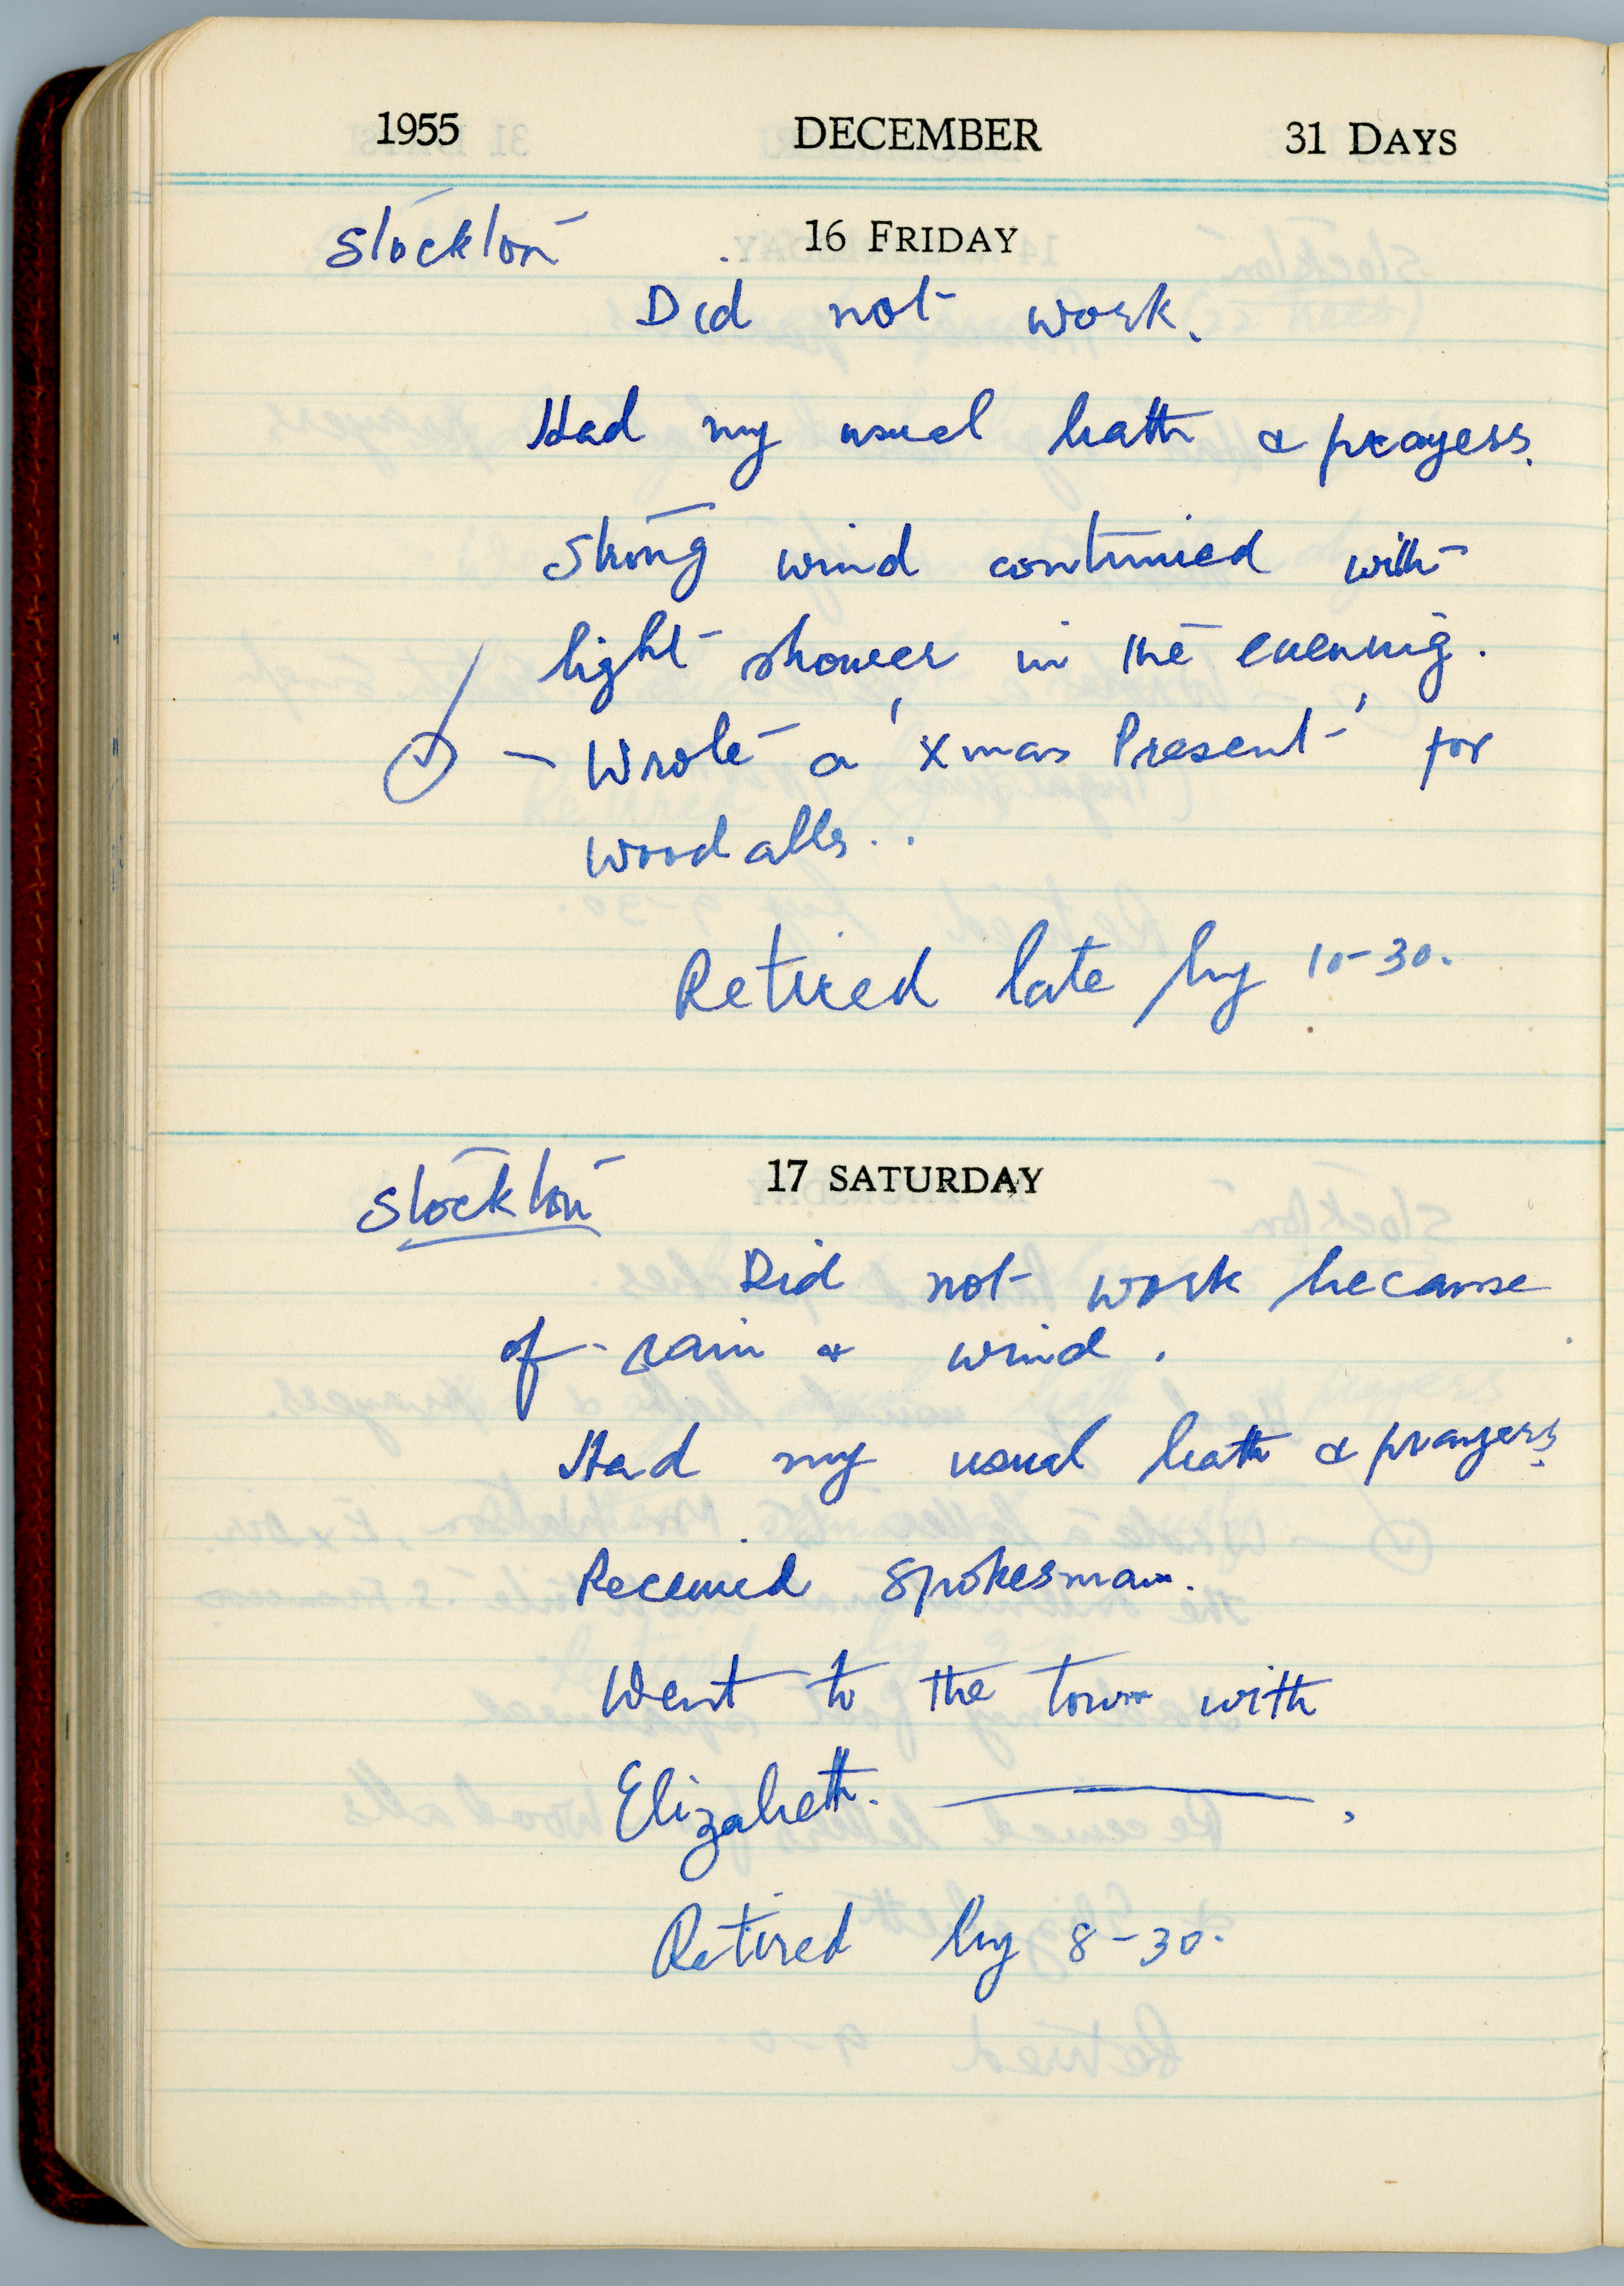 1955 DECEMBER 31 DAYS
Stockton 16 FRIDAY
Did not work.
Had my usual bath & prayers.
Strong wind continued with
light shower in the evening.
— Wrote a 'Xmas Present' for
Woodalls..
Retired late by 10-30.
Stockton 17 SATURDAY
Did not work because
of rain & wind.
Had my usual bath & prayers.
Received Spokesman.
Went to the town with
Elizabeth. —.
Retired by 8-30.